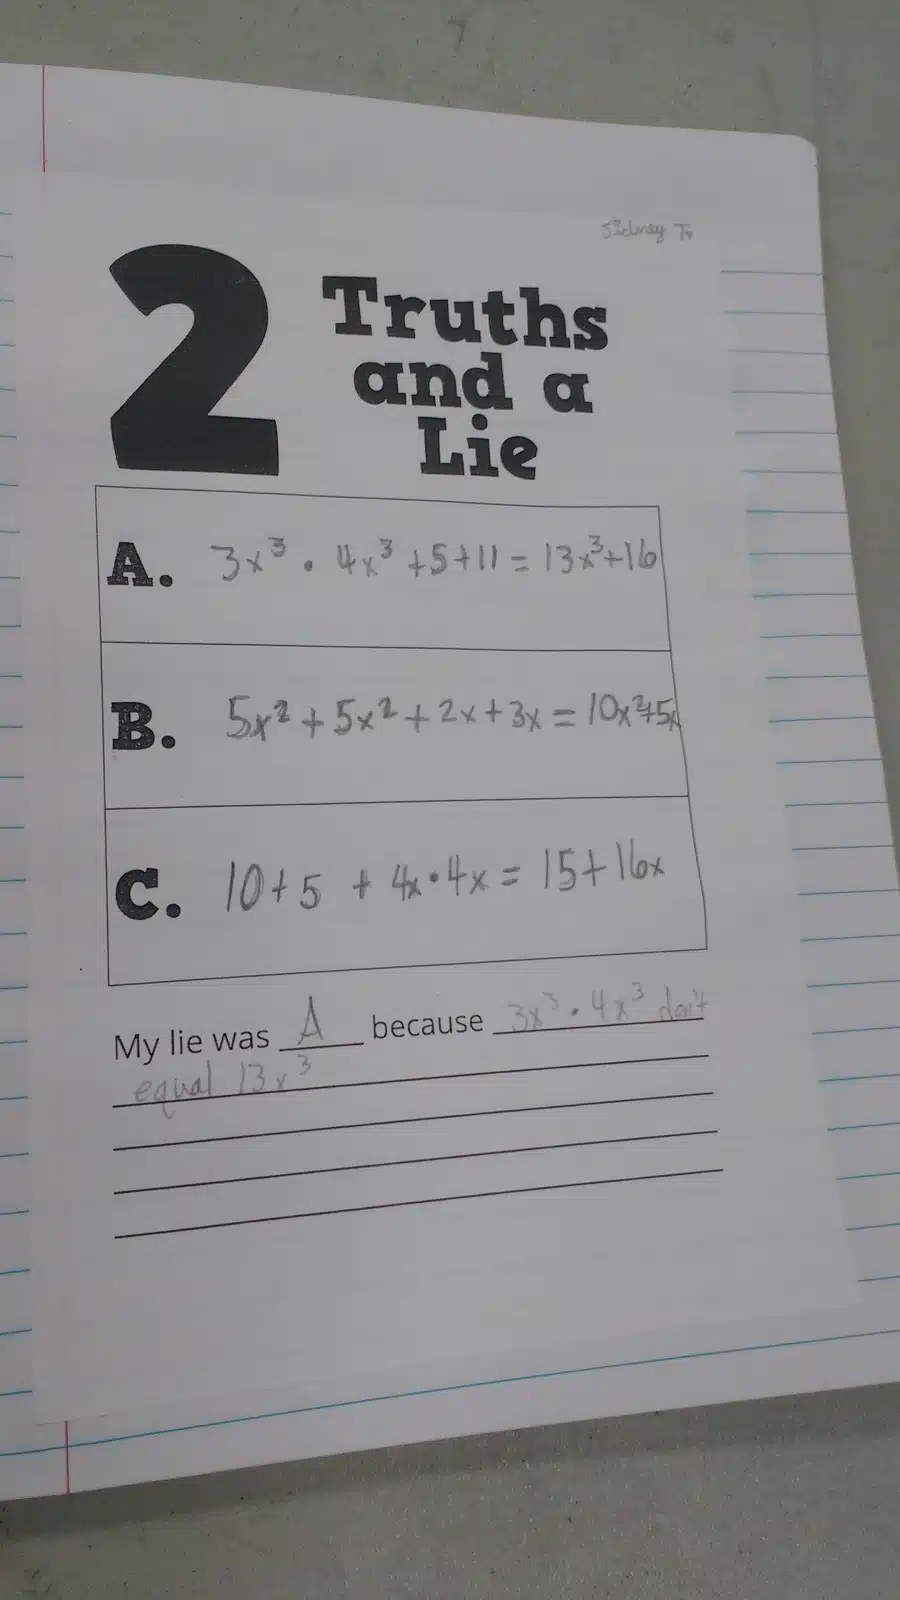 Sidney T.
2 Truths
and a
Lie
A. 3x³ · 4x³ +5+11 = 13x³+16
B. 5x² + 5x² + 2x + 3x = 10x²+5x
C. 10+5 + 4x·4x = 15+16x
My lie was A because 3x³ · 4x³ don't
equal 13x³